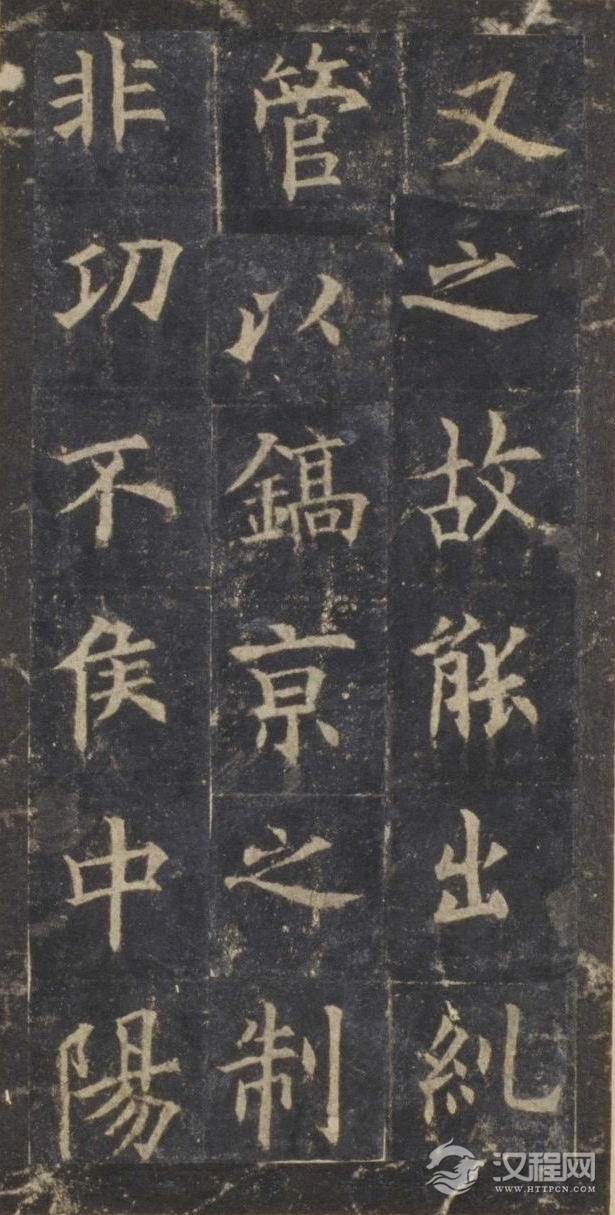 又之故能出糺
管以鎬亰之制
非㓛不侯中陽
汉程网
WWW.HTTPCN.COM